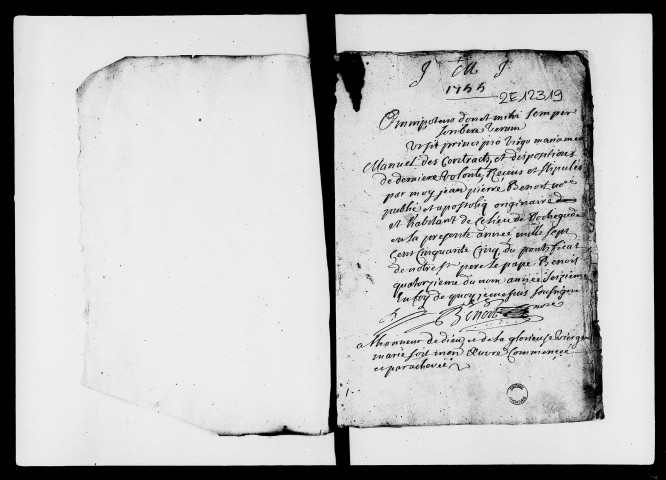 1755
2E12319
Omnipotens donet mihi semper
scribere verum
Manuel des Contracts, et dispositions
de derniere volonté, Receus et stipulés
par moy jean pierre Benoit nore
public et apostoliq originaire
et habitant de ce lieu de Rochegude
en la presente année mille sept
cent Cinquante Cinq, du pontificat
de notre st pere le pape Benoit
quatorzieme du nom année seizieme
En foy de quoy je me suis soussigné
Benoit nore
a lhonneur de dieu et de la glorieuse vierge
marie soit mon Œuvre Commencé
et parachevée